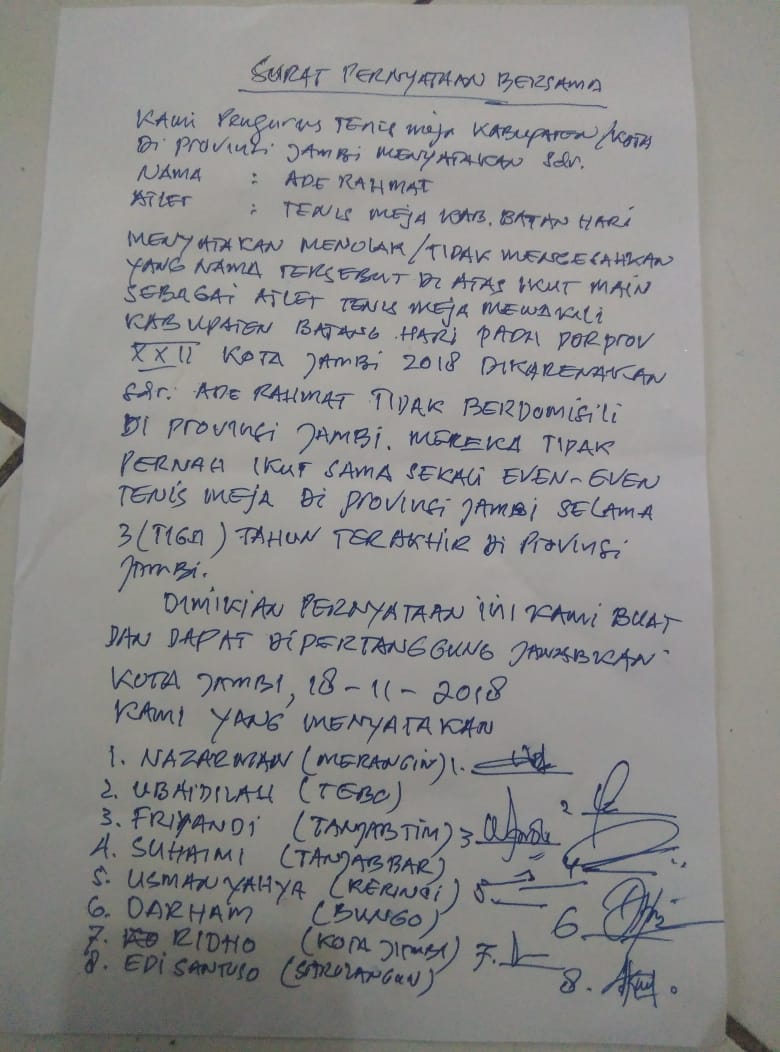 SURAT PERNYATAAN BERSAMA
KAMI Pengurus TENIS meja KABUPATEN/KOTA
Di PROVINSI JAMBI MENYATAKAN Sdr.
NAMA : ADE RAHMAT
ATLET : TENIS MEJA KAB. BATAN HARI
MENYATAKAN MENOLAK/TIDAK MENGESAHKAN
YANG NAMA TERSEBUT DI ATAS IKUT MAIN
SEBAGAI ATLET TENIS MEJA MEWAKILI
KABUPATEN BATANG HARI PADA PORPROV
XXII KOTA JAMBI 2018 DIKARENAKAN
Sdr. ADE RAHMAT TIDAK BERDOMISILI
DI PROVINSI JAMBI. MEREKA TIDAK
PERNAH IKUT SAMA SEKALI EVEN-EVEN
TENIS MEJA Di PROVINSI JAMBI SELAMA
3 (TIGA) TAHUN TERAKHIR Di PROVINSI
JAMBI.
DIMIKIAN PERNYATAAN INI KAMI BUAT
DAN DAPAT DIPERTANGGUNG JAWABKAN
KOTA JAMBI, 18-11-2018
KAMI YANG MENYATAKAN
1. NAZARMAN (MERANGIN) 1.
2. UBAIDILAH (TEBO) 2
3. FRIYANDI (TANJABTIM) 3
4. SUHAIMI (TANJABBAR) 4
5. USMAN YAHYA (KERINCI) 5.
6. DARHAM (BUNGO) 6.
7. RIDHO (KOTA JAMBI) 7.
8. EDI SANTUSO (SAROLANGUN) 8.